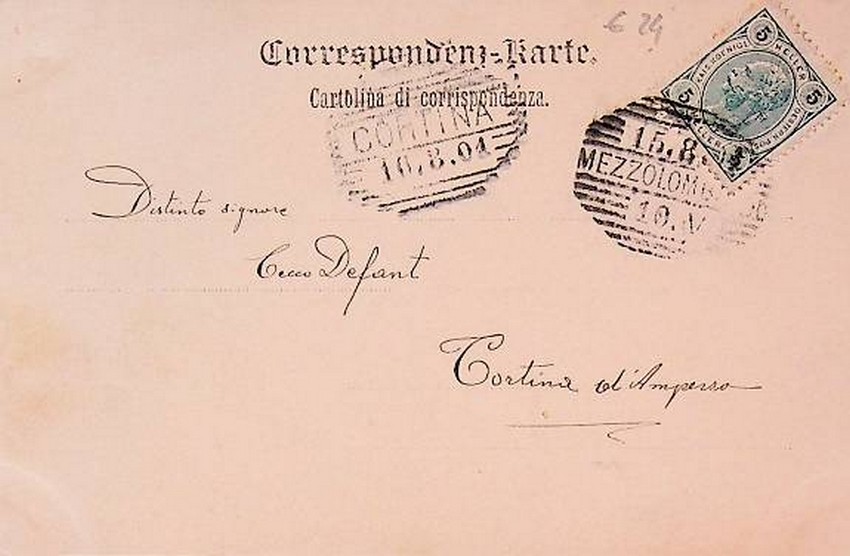 6 24
Correspondenz-Karte.
Cartolina di corrispondenza.
CORTINA
16.8.01
15.8
MEZZOLOMB
10.V
5 HELLER 5
KAIS. KOENIGL.
Distinto signore
Cecco Defant
Cortina d'Ampezzo